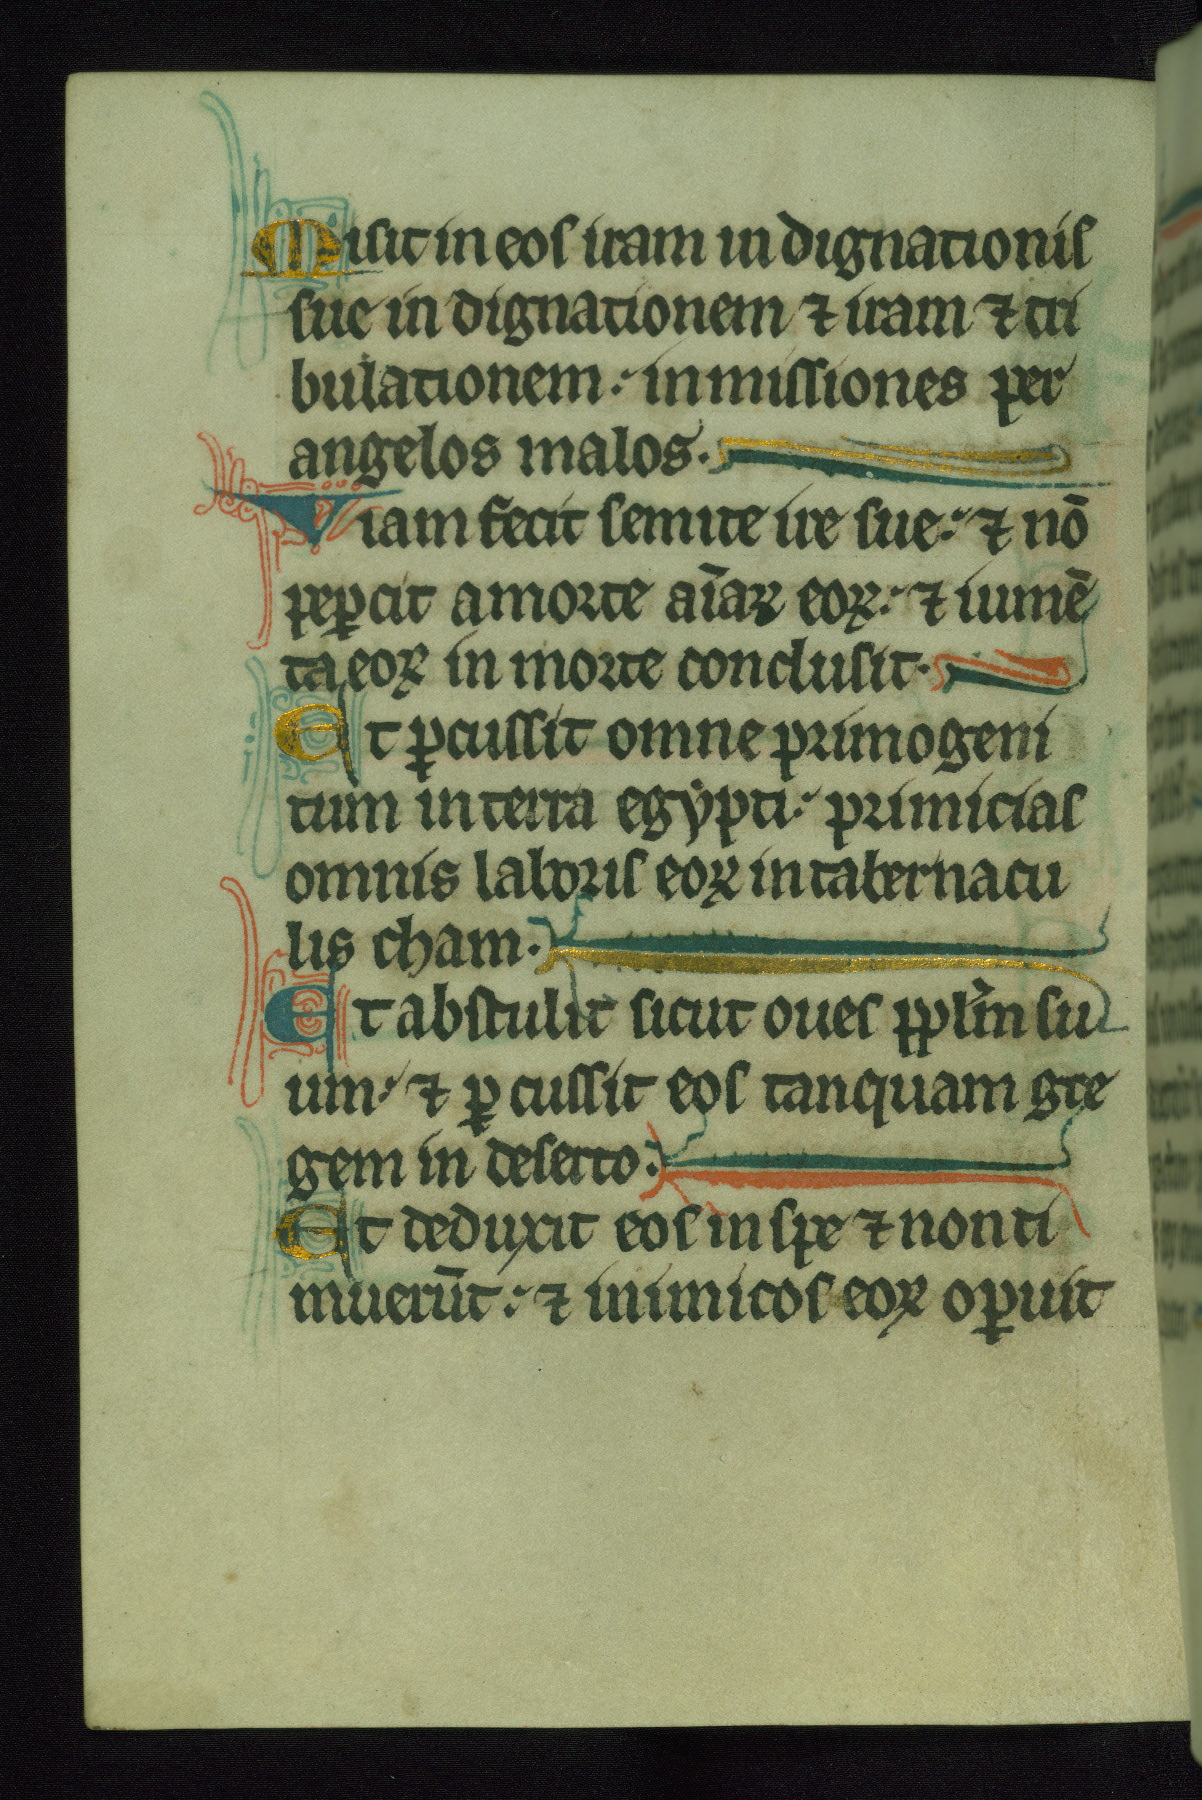 Misit in eos iram indignationis
sue indignationem ⁊ iram ⁊ tri
bulationem: inmissiones per
angelos malos.
Viam fecit semite ire sue: ⁊ nō
peꝑcit amorte aīaꝝ eoꝝ: ⁊ iumē
ta eoꝝ in morte conclusit.
Et ꝑcussit omne primogeni
tum in terra egẏpti: primicias
omnis laboris eoꝝ in tabernacu
lis cham.
Et abstulit sicut oues pplm̄ su
um: ⁊ ꝑcussit eos tanquam gre
gem in deserto:
Et deduxit eos in spe ⁊ non ti
muerūt: ⁊ inimicos eoꝝ oꝑuit